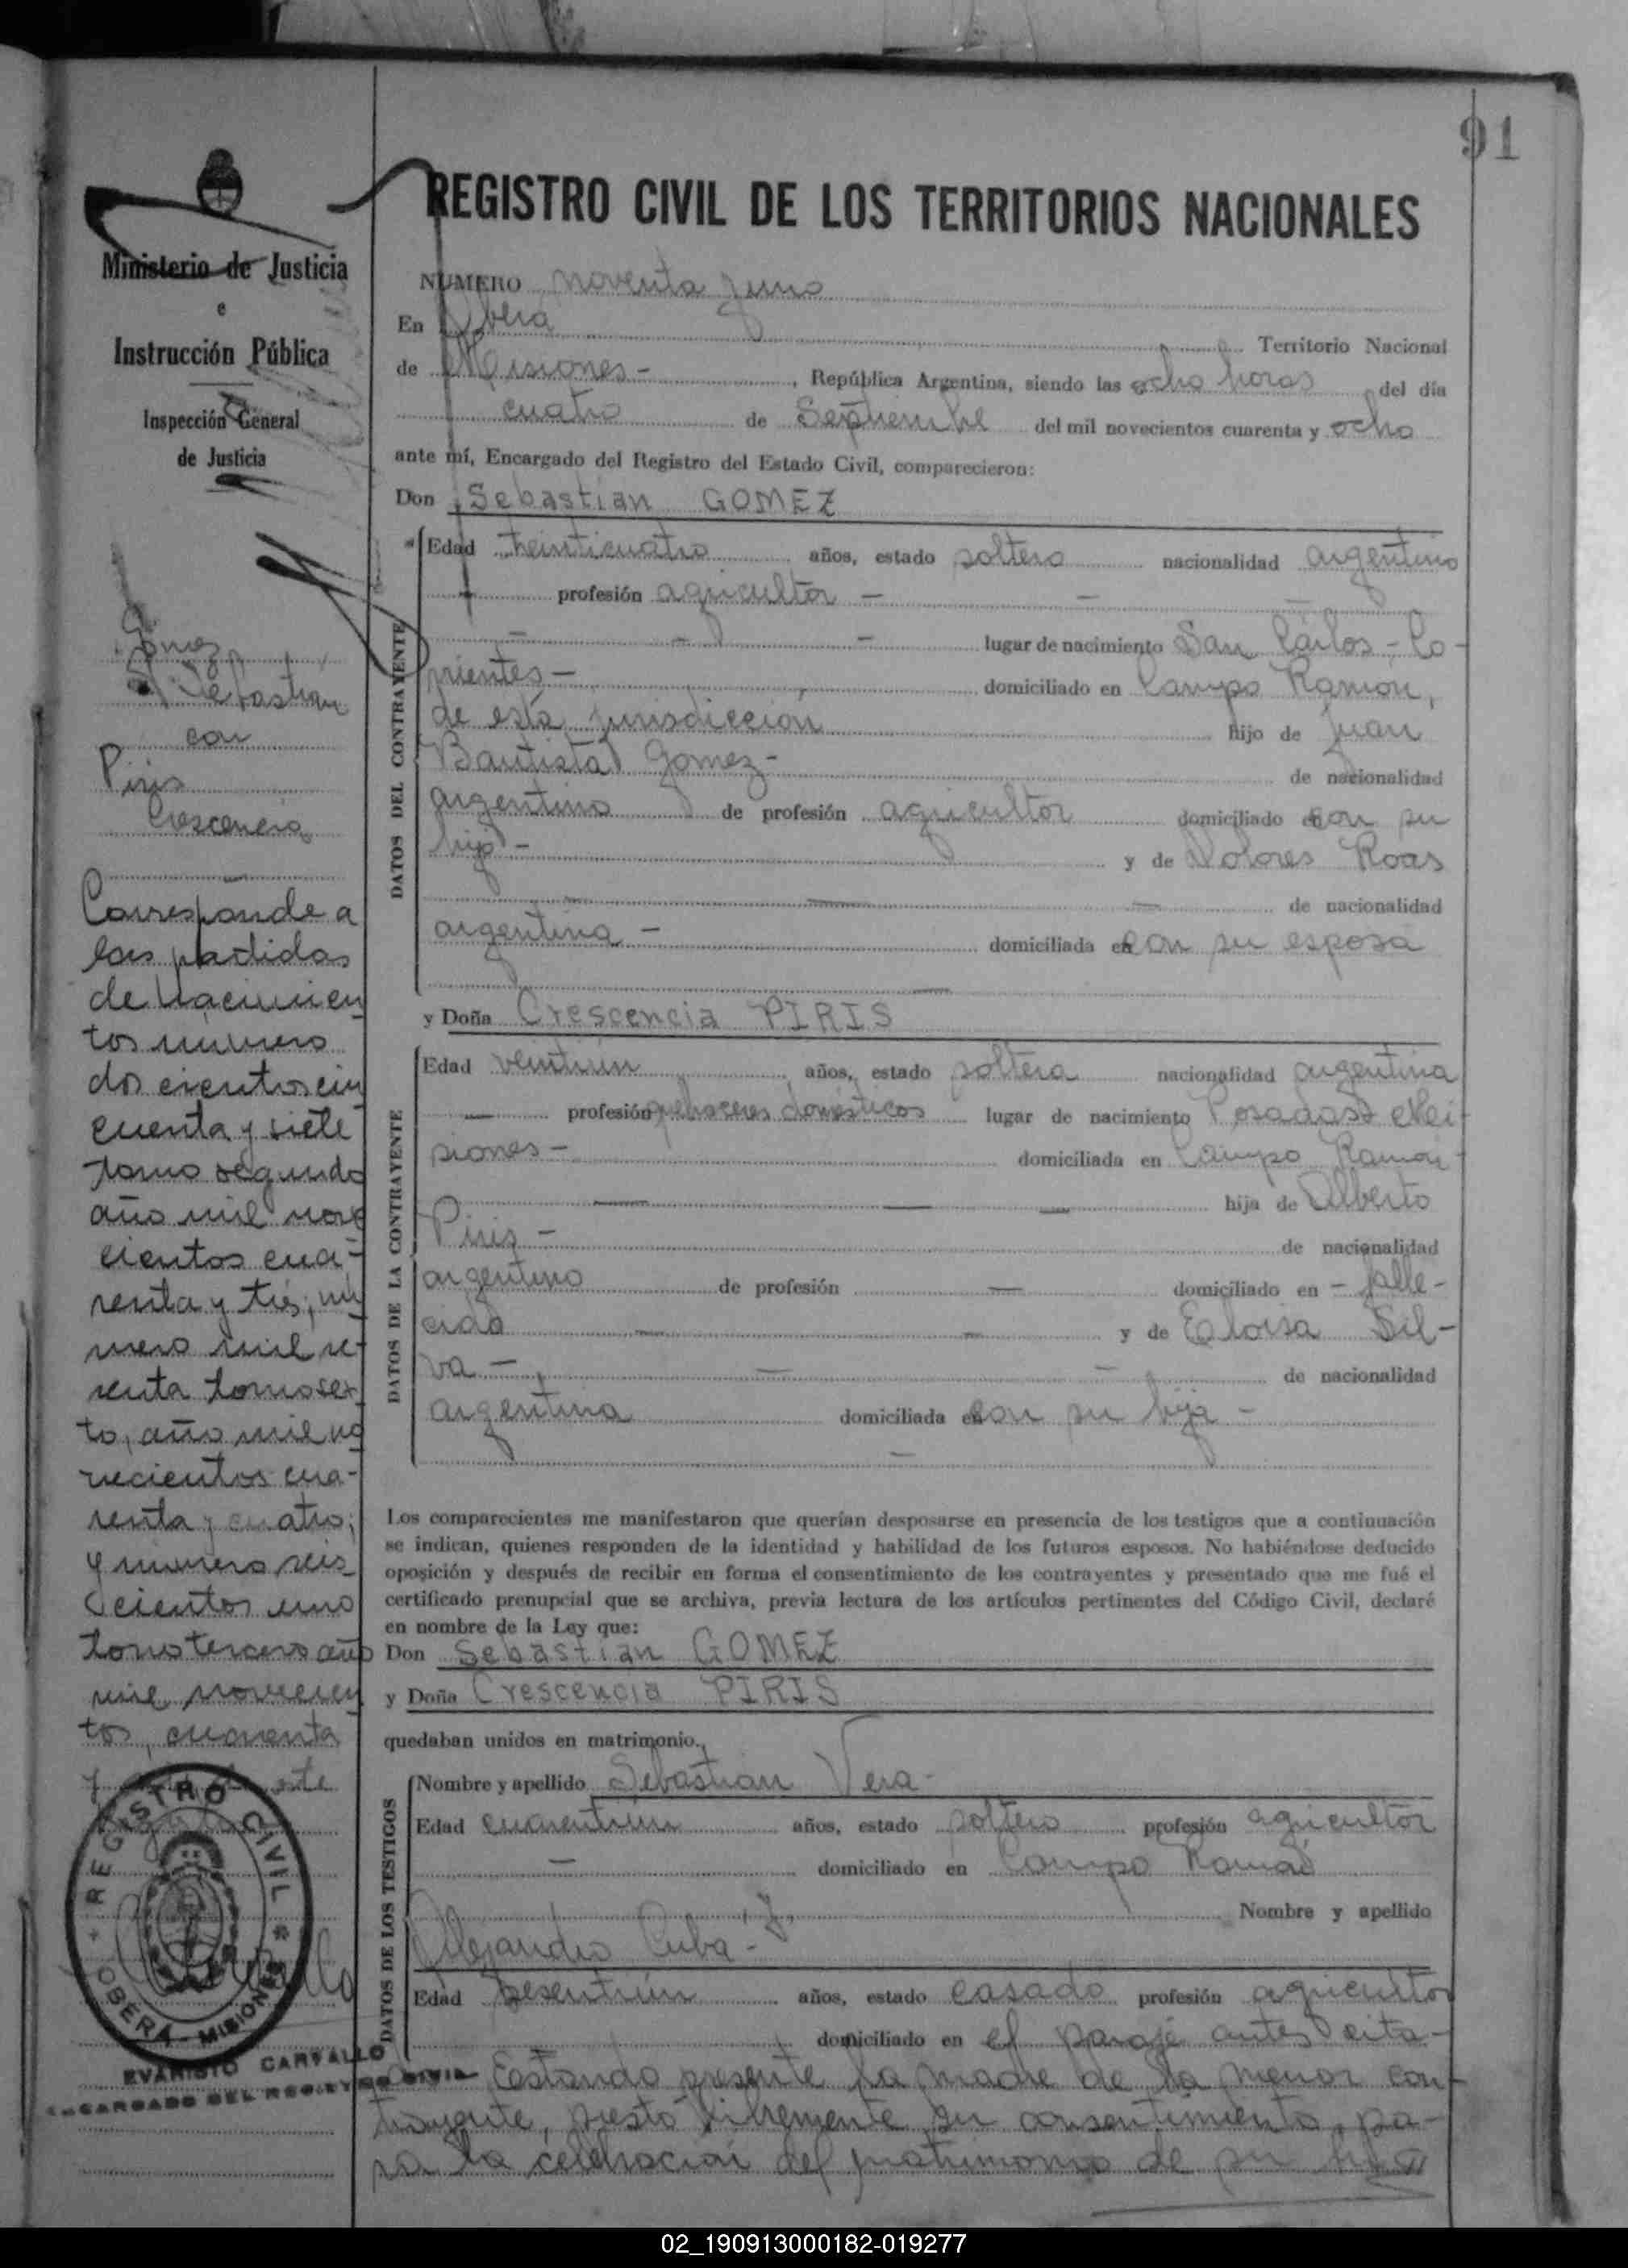 91
Ministerio de Justicia
e
Instrucción Pública
Inspección General
de Justicia
Gomez
Sebastian
con
Piris
Crescencia
Corresponde a
las partidas
de nacimien
tos numero
dos cientos cin
cuenta y siete
tomo segundo
año mil nove
cientos cua-
renta y tres; nú
mero mil se-
senta tomo sex
to, año mil no
vecientos cua-
renta y cuatro;
y numero seis
cientos uno
tomo tercero año
mil novecien
tos, cuarenta
y
REGISTRO CIVIL
OBERÁ - MISIONES
EVARISTO CARVALLO
ENCARGADO DEL REGISTRO CIVIL
REGISTRO CIVIL DE LOS TERRITORIOS NACIONALES
NUMERO noventa y uno
En Oberá Territorio Nacional
de Misiones - , República Argentina, siendo las ocho horas del día
cuatro de Septiembre del mil novecientos cuarenta y ocho
ante mí, Encargado del Registro del Estado Civil, comparecieron:
Don Sebastian GOMEZ
DATOS DEL CONTRAYENTE
Edad veinticuatro años, estado soltero nacionalidad argentino
profesión agricultor - - -
- - - lugar de nacimiento San Carlos - Co-
rrientes - domiciliado en Campo Ramon,
de esta jurisdicción hijo de Juan
Bautista Gomez - de nacionalidad
argentino de profesión agricultor domiciliado con su
hijo - y de Dolores Roas
de nacionalidad
argentina - domiciliada en con su esposo
y Doña Crescencia PIRIS
DATOS DE LA CONTRAYENTE
Edad veintiun años, estado soltera nacionalidad argentina
— profesión quehaceres domésticos lugar de nacimiento Posadas Mi-
siones - domiciliada en Campo Ramon -
— — — hija de Alberto
Piris - de nacionalidad
argentino de profesión — domiciliado en - falle-
cido — — y de Eloisa Sil-
va - — - de nacionalidad
argentina domiciliada en con su hija -
Los comparecientes me manifestaron que querían desposarse en presencia de los testigos que a continuación
se indican, quienes responden de la identidad y habilidad de los futuros esposos. No habiéndose deducido
oposición y después de recibir en forma el consentimiento de los contrayentes y presentado que me fué el
certificado prenupcial que se archiva, previa lectura de los artículos pertinentes del Código Civil, declaré
en nombre de la Ley que:
Don Sebastian GOMEZ
y Doña Crescencia PIRIS
quedaban unidos en matrimonio.
DATOS DE LOS TESTIGOS
Nombre y apellido Sebastian Vera -
Edad cuarentiún años, estado soltero profesión agricultor
— domiciliado en Campo Ramon
Nombre y apellido
Alejandro Cuba -
Edad sesentiún años, estado casado profesión agricultor
domiciliado en el paraje antes cita-
do - Estando presente la madre de la menor con-
trayente, prestó libremente su consentimiento, pa-
ra la celebración del matrimonio de su hija
02_190913000182-019277